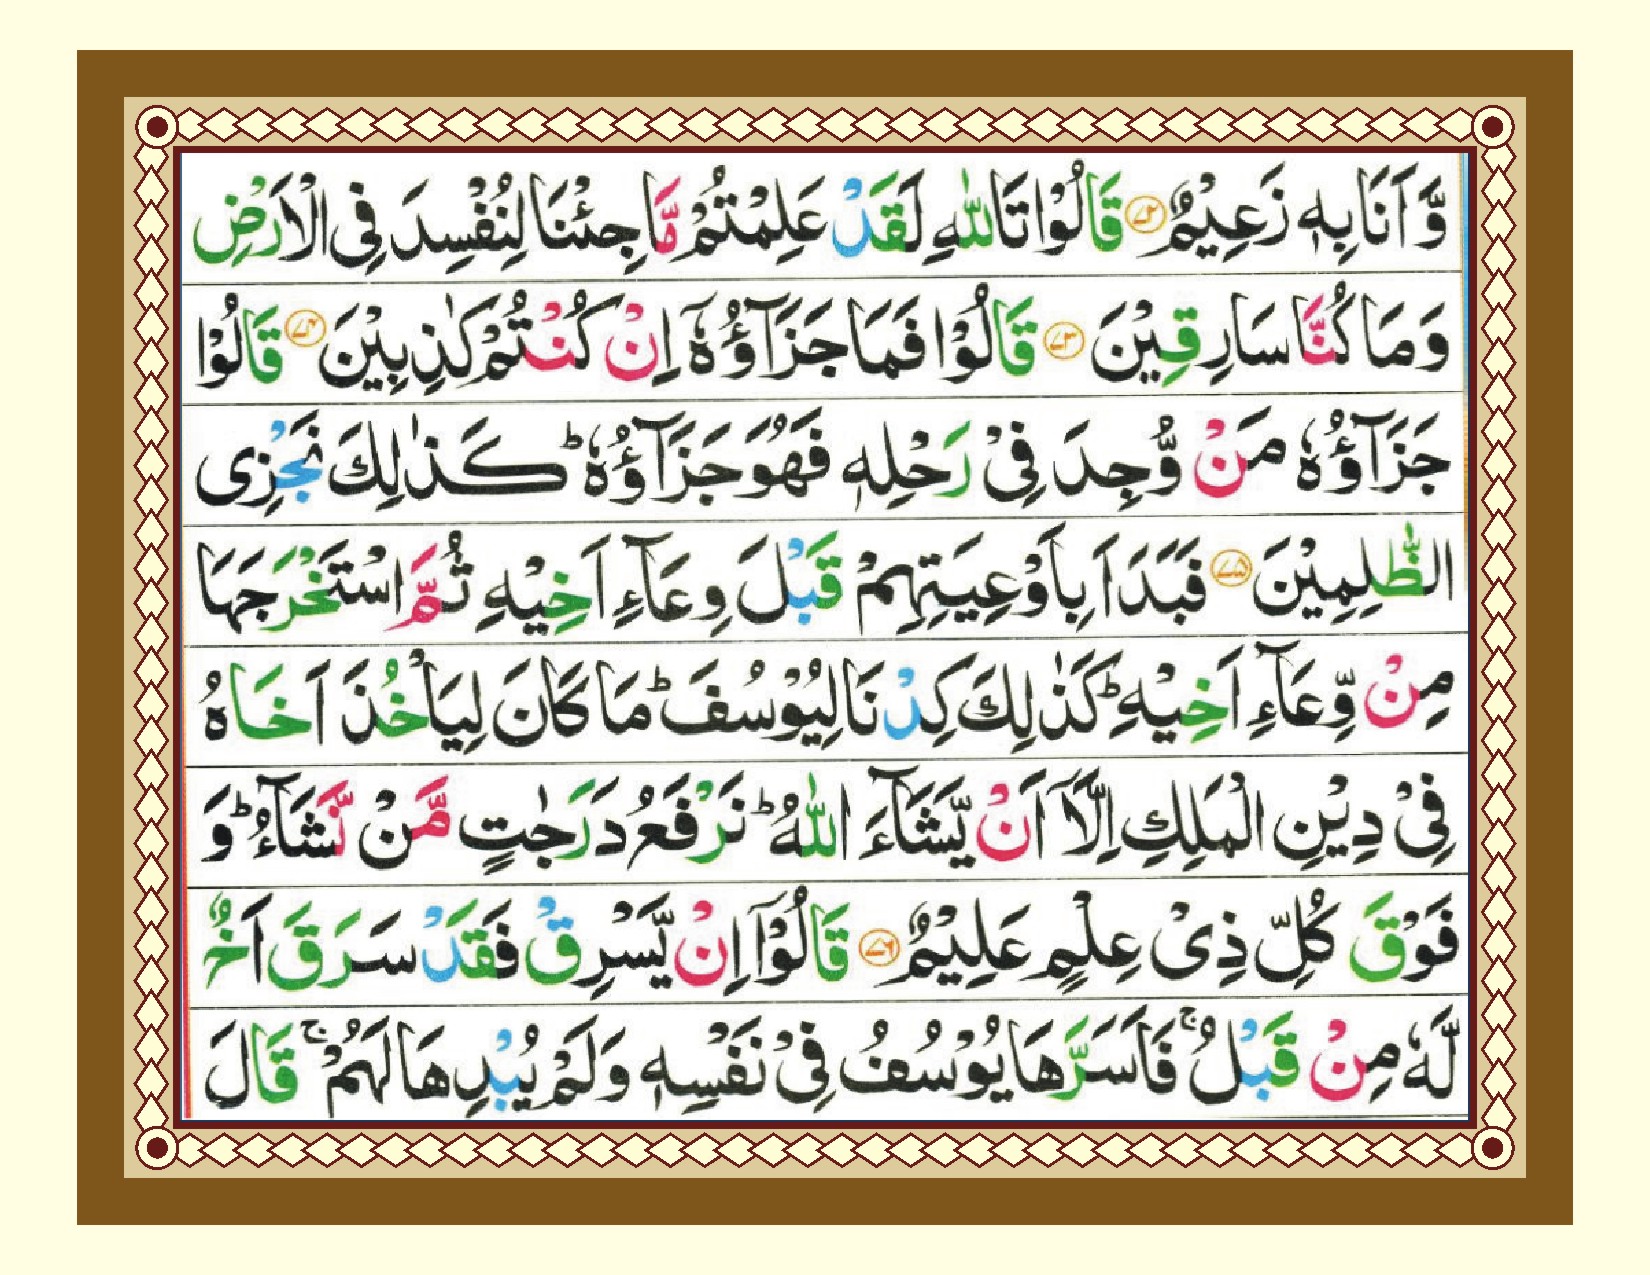 وَّ اَنَا بِهٖ زَعِیْمٌ ﴿۷۲﴾ قَالُوْا تَاللّٰهِ لَقَدْ عَلِمْتُمْ مَّا جِئْنَا لِنُفْسِدَ فِی الْاَرْضِ
وَمَا كُنَّا سَارِقِیْنَ ﴿۷۳﴾ قَالُوْا فَمَا جَزَآؤُهٗۤ اِنْ كُنْتُمْ كٰذِبِیْنَ ﴿۷۴﴾ قَالُوْا
جَزَآؤُهٗ مَنْ وُّجِدَ فِیْ رَحْلِهٖ فَهُوَ جَزَآؤُهٗ ؕ كَذٰلِكَ نَجْزِی
الظّٰلِمِیْنَ ﴿۷۵﴾ فَبَدَاَ بِاَوْعِیَتِهِمْ قَبْلَ وِعَآءِ اَخِیْهِ ثُمَّ اسْتَخْرَجَهَا
مِنْ وِّعَآءِ اَخِیْهِ ؕ كَذٰلِكَ كِدْنَا لِیُوْسُفَ ؕ مَا كَانَ لِیَاْخُذَ اَخَاهُ
فِیْ دِیْنِ الْمَلِكِ اِلَّاۤ اَنْ یَّشَآءَ اللّٰهُ ؕ نَرْفَعُ دَرَجٰتٍ مَّنْ نَّشَآءُ ؕ وَ
فَوْقَ كُلِّ ذِیْ عِلْمٍ عَلِیْمٌ ﴿۷۶﴾ قَالُوْۤا اِنْ یَّسْرِقْ فَقَدْ سَرَقَ اَخٌ
لَّهٗ مِنْ قَبْلُ ۚ فَاَسَرَّهَا یُوْسُفُ فِیْ نَفْسِهٖ وَلَمْ یُبْدِهَا لَهُمْ ۚ قَالَ